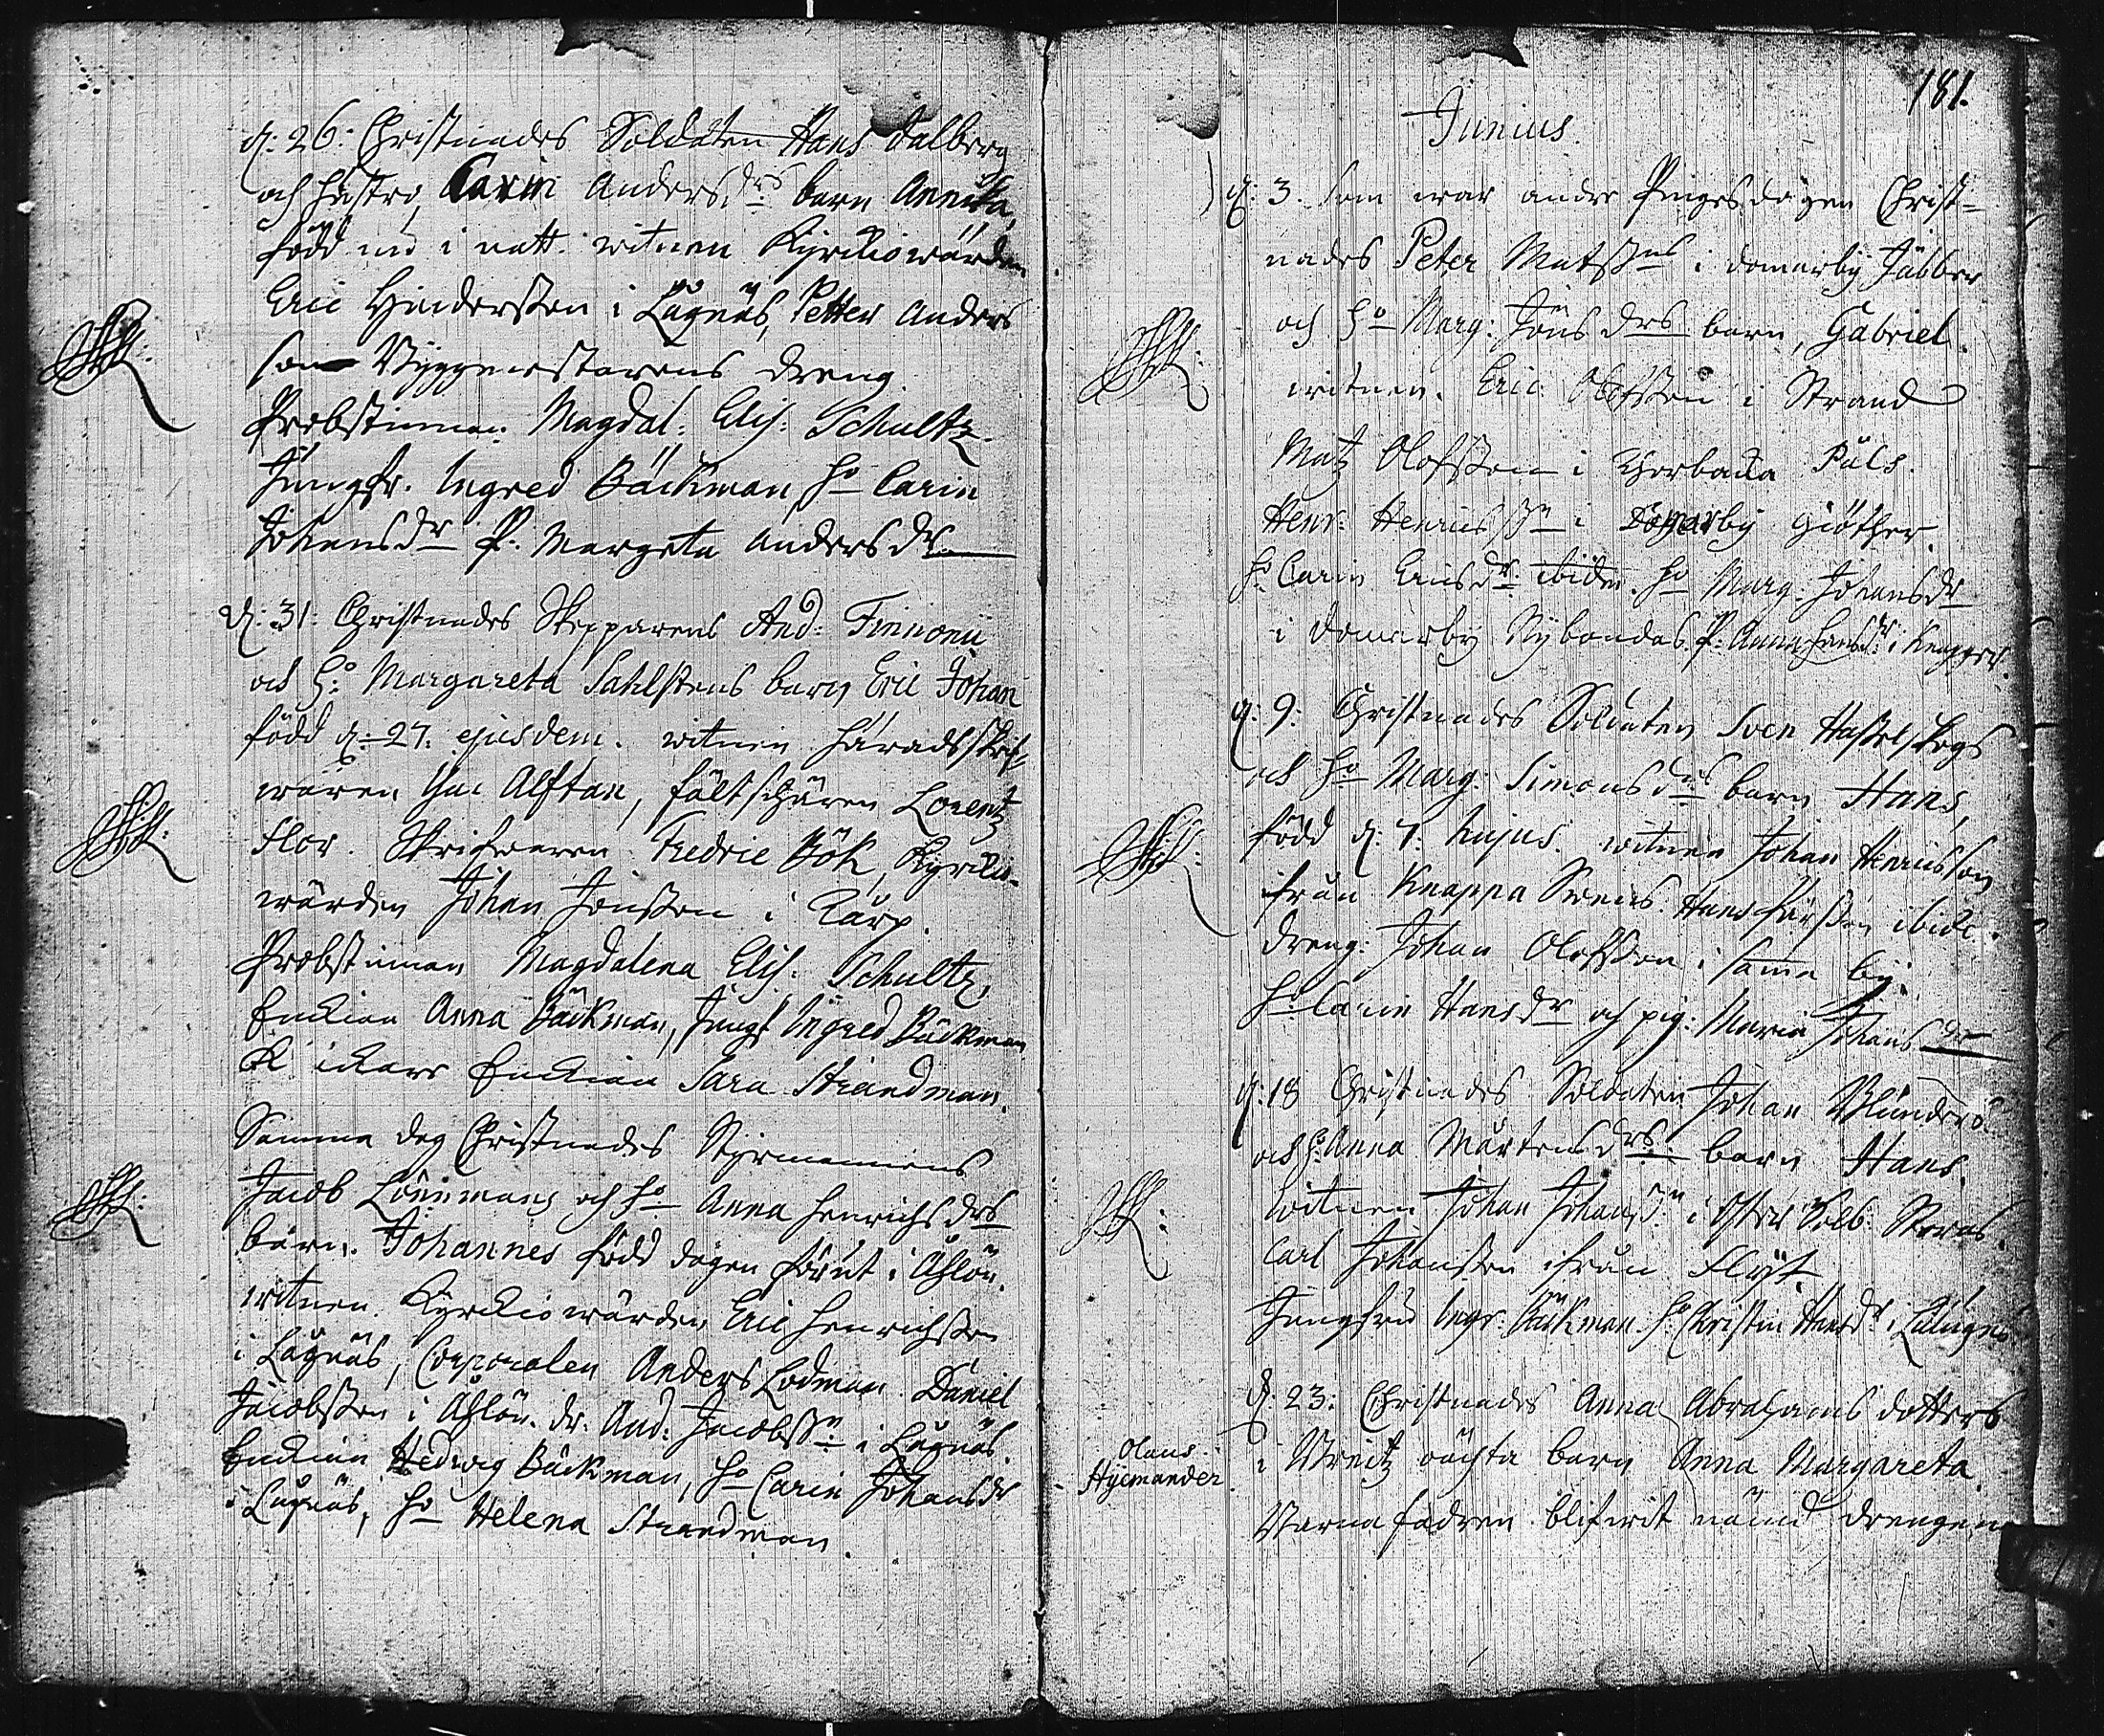 d. 26. Christnades Soldaten Hans Dalberg
och hustro Carin Anders drs barn Annika,
född nu i natt. witnen Kyrckiowärden
Eric Hindersson i Lågnäs, Petter Anders
son Byggmestarens dreng.
Probstinnan Magdal: Elis: Schultz.
Jungfr. Ingred Bäckman ho Carin
Johansdr P. Margeta Andersdr
d. 31. Christnades Skepparens And: Finnonii
och ho Margareta Sahlstens barn Eric Johan
född d. 27. ejusdem. witnen häradsskrif-
waren Alftan, fältschären Lorentz
Flor. Skrifwaren Fredric Bök, Kyrckio-
wärden Johan Jonsson i Kärp.
Probstinnan Magdalena Elis: Schultz,
Enckian Anna Bäckman, Jungf Ingred Bäckman
Enckian Sara Strandman.
Samma dag Christnades Styrmannens
Jacob Lönnmans och ho Anna Henrichsdrs
barn. Johannes född dagen förut i
witnen. Kyrckiowärden Eric Henrichsson
i Lågnäs, Corporalen Anders Lodman. Daniel
Jacobsson i dr. And: Jacobssn i Lågnäs.
Enckian Hedwig Bäckman, ho Carin Johansdr
i Lågnäs, ho Helena Strandman.
181.
Junius.
d. 3. som war andre Pingesdagen Christ-
nades Peter Matssns i Domarby Jäbber
och ho Marg: Jöns drs barn, Gabriel.
witnen. Eric Olofsson i Strand
Matz Olofsson i Påls.
Henr: Henricssn i Domarby Giöther.
ho Carin Ericsdr ibidm. ho Marg: Johansdr
i Domarby Nybondas. P. Anna Hansdr i
d. 9. Christnades Soldaten Sven Hassel
och ho Marg: Simonsdrs barn Hans,
född d. 7. hujus. witnen Johan Henricsson
ifrån Knappa Swens. Hans ibid.
dreng: Johan Olofsson i samma by.
ho Carin Hansdr och pig: Maria Johansdr
d. 18 Christnades Soldaten Johan
och ho Anna Mårtensdrs barn Hans.
witnen Johan Johanssn i
Carl Johansson ifrån Flyt.
Jungfru Ingr: Bäckman. ho Christin Hansdr i
d. 23: Christnades Anna Abrahams dotters
i oächta barn Anna Margareta.
Barnafadren blifwit nämd drengen
Olaus
Hycmander